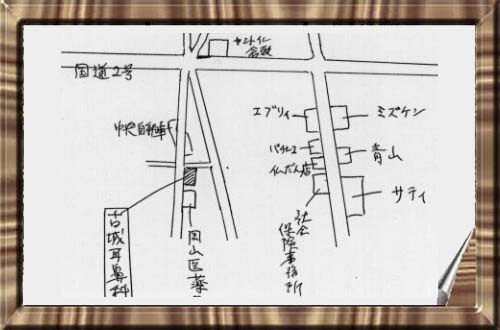 セントイン
倉敷
国道2号
エブリィ
ミズケン
中央自動車
パチンコ
青山
仏だん店
サティ
社会
保険事務所
古城耳鼻科
岡山医薬